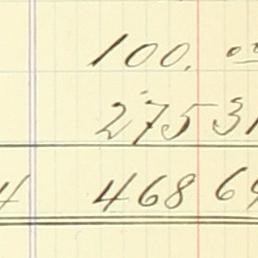 100.00
275 31
4 468 69